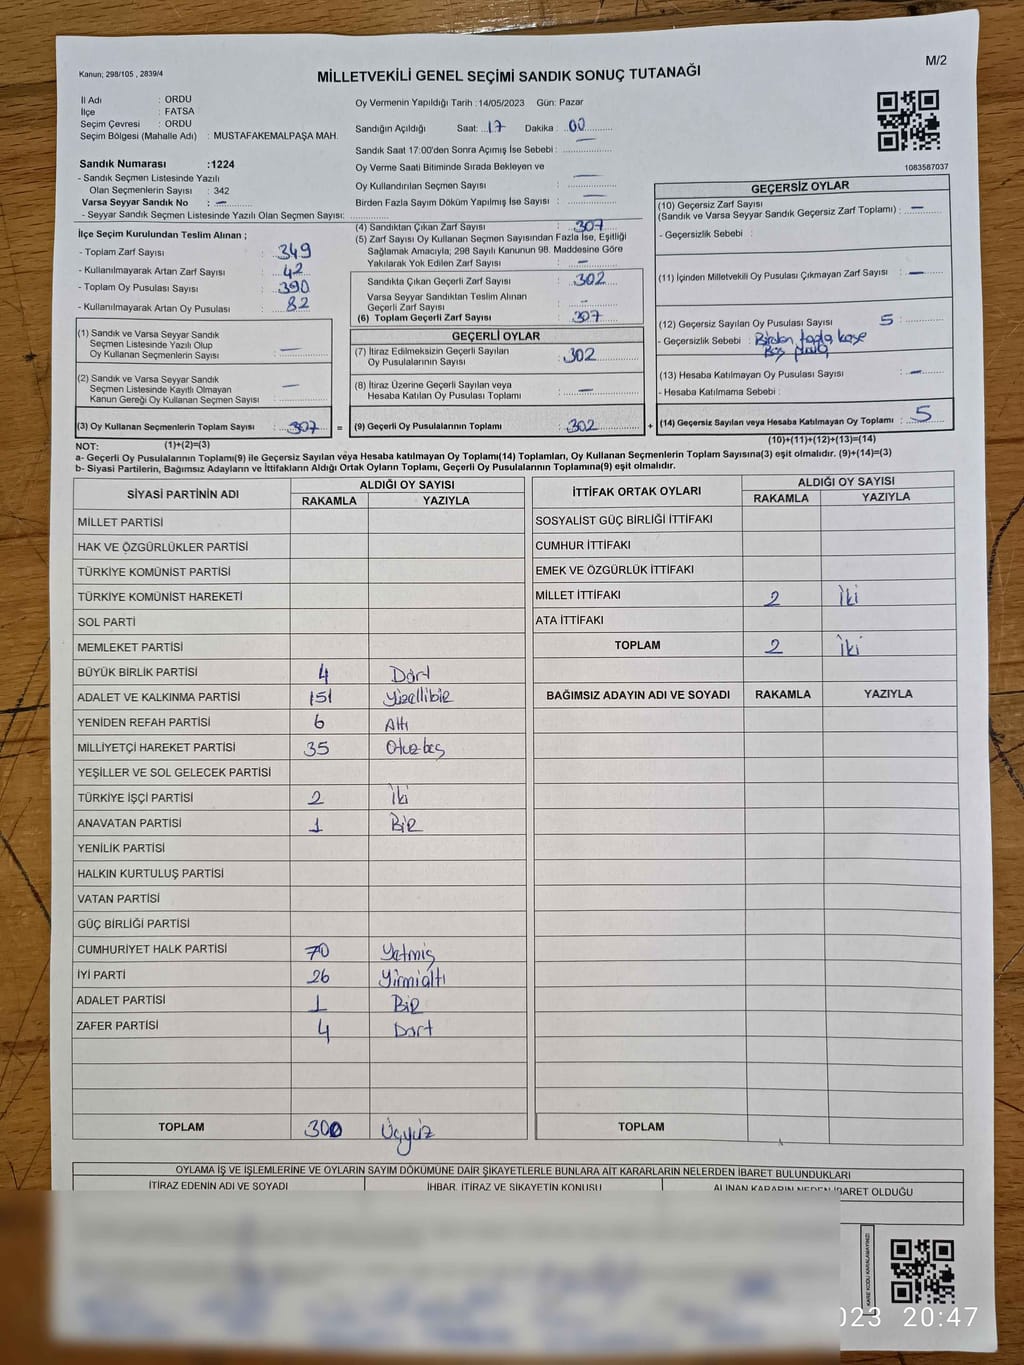 Kanun; 298/105 , 2839/4
MİLLETVEKİLİ GENEL SEÇİMİ SANDIK SONUÇ TUTANAĞI
M/2
İl Adı : ORDU
İlçe : FATSA
Seçim Çevresi : ORDU
Seçim Bölgesi (Mahalle Adı) : MUSTAFAKEMALPAŞA MAH.
Oy Vermenin Yapıldığı Tarih :14/05/2023 Gün: Pazar
Sandığın Açıldığı Saat: 17 Dakika : 00
Sandık Saat 17:00'den Sonra Açımış İse Sebebi :
Oy Verme Saati Bitiminde Sırada Bekleyen ve
Oy Kullandırılan Seçmen Sayısı : —
Birden Fazla Sayım Döküm Yapılmış İse Sayısı : —
1083587037
Sandık Numarası :1224
- Sandık Seçmen Listesinde Yazılı
Olan Seçmenlerin Sayısı : 342
Varsa Seyyar Sandık No : —
- Seyyar Sandık Seçmen Listesinde Yazılı Olan Seçmen Sayısı:
İlçe Seçim Kurulundan Teslim Alınan ;
- Toplam Zarf Sayısı : 349
- Kullanılmayarak Artan Zarf Sayısı : 42
- Toplam Oy Pusulası Sayısı : 390
- Kullanılmayarak Artan Oy Pusulası : 82
(1) Sandık ve Varsa Seyyar Sandık
Seçmen Listesinde Yazılı Olup
Oy Kullanan Seçmenlerin Sayısı : —
(2) Sandık ve Varsa Seyyar Sandık
Seçmen Listesinde Kayıtlı Olmayan
Kanun Gereği Oy Kullanan Seçmen Sayısı : —
(3) Oy Kullanan Seçmenlerin Toplam Sayısı : 307 =
(1)+(2)=(3)
(4) Sandıktan Çıkan Zarf Sayısı : 307
(5) Zarf Sayısı Oy Kullanan Seçmen Sayısından Fazla İse, Eşitliği
Sağlamak Amacıyla, 298 Sayılı Kanunun 98. Maddesine Göre
Yakılarak Yok Edilen Zarf Sayısı : —
Sandıkta Çıkan Geçerli Zarf Sayısı : 302
Varsa Seyyar Sandıktan Teslim Alınan
Geçerli Zarf Sayısı : —
(6) Toplam Geçerli Zarf Sayısı : 307
GEÇERLİ OYLAR
(7) İtiraz Edilmeksizin Geçerli Sayılan
Oy Pusulalarının Sayısı : 302
(8) İtiraz Üzerine Geçerli Sayılan veya
Hesaba Katılan Oy Pusulası Toplamı : —
(9) Geçerli Oy Pusulalarının Toplamı : 302 +
GEÇERSİZ OYLAR
(10) Geçersiz Zarf Sayısı
(Sandık ve Varsa Seyyar Sandık Geçersiz Zarf Toplamı) : —
- Geçersizlik Sebebi :
(11) İçinden Milletvekili Oy Pusulası Çıkmayan Zarf Sayısı : —
(12) Geçersiz Sayılan Oy Pusulası Sayısı 5 :
- Geçersizlik Sebebi : Birden fazla kaşe
Boş
(13) Hesaba Katılmayan Oy Pusulası Sayısı : —
- Hesaba Katılmama Sebebi :
(14) Geçersiz Sayılan veya Hesaba Katılmayan Oy Toplamı : 5
(10)+(11)+(12)+(13)=(14)
NOT:
a- Geçerli Oy Pusulasının Toplamı(9) ile Geçersiz Sayılan veya Hesaba katılmayan Oy Toplamı(14) Toplamları, Oy Kullanan Seçmenlerin Toplam Sayısına(3) eşit olmalıdır. (9)+(14)=(3)
b- Siyasi Partilerin, Bağımsız Adayların ve İttifakların Aldığı Ortak Oyların Toplamı, Geçerli Oy Pusulalarının Toplamına(9) eşit olmalıdır.
SİYASİ PARTİNİN ADI ALDIĞI OY SAYISI
RAKAMLA YAZIYLA
MİLLET PARTİSİ
HAK VE ÖZGÜRLÜKLER PARTİSİ
TÜRKİYE KOMÜNİST PARTİSİ
TÜRKİYE KOMÜNİST HAREKETİ
SOL PARTİ
MEMLEKET PARTİSİ
BÜYÜK BİRLİK PARTİSİ 4 Dört
ADALET VE KALKINMA PARTİSİ 151 Yüzellibir
YENİDEN REFAH PARTİSİ 6 Altı
MİLLİYETÇİ HAREKET PARTİSİ 35 Otuzbeş
YEŞİLLER VE SOL GELECEK PARTİSİ
TÜRKİYE İŞÇİ PARTİSİ 2 İki
ANAVATAN PARTİSİ 1 Bir
YENİLİK PARTİSİ
HALKIN KURTULUŞ PARTİSİ
VATAN PARTİSİ
GÜÇ BİRLİĞİ PARTİSİ
CUMHURİYET HALK PARTİSİ 70 Yetmiş
İYİ PARTİ 26 Yirmialtı
ADALET PARTİSİ 1 Bir
ZAFER PARTİSİ 4 Dört
TOPLAM 300 Üçyüz
İTTİFAK ORTAK OYLARI ALDIĞI OY SAYISI
RAKAMLA YAZIYLA
SOSYALİST GÜÇ BİRLİĞİ İTTİFAKI
CUMHUR İTTİFAKI
EMEK VE ÖZGÜRLÜK İTTİFAKI
MİLLET İTTİFAKI 2 İki
ATA İTTİFAKI
TOPLAM 2 İki
BAĞIMSIZ ADAYIN ADI VE SOYADI RAKAMLA YAZIYLA
TOPLAM
OYLAMA İŞ VE İŞLEMLERİNE VE OYLARIN SAYIM DÖKÜMÜNE DAİR ŞİKAYETLERLE BUNLARA AİT KARARLARIN NELERDEN İBARET BULUNDUKLARI
İTİRAZ EDENİN ADI VE SOYADI İHBAR, İTİRAZ VE ŞİKAYETİN KONUSU ALINAN KARARIN NEDEN İBARET OLDUĞU
023 20:47